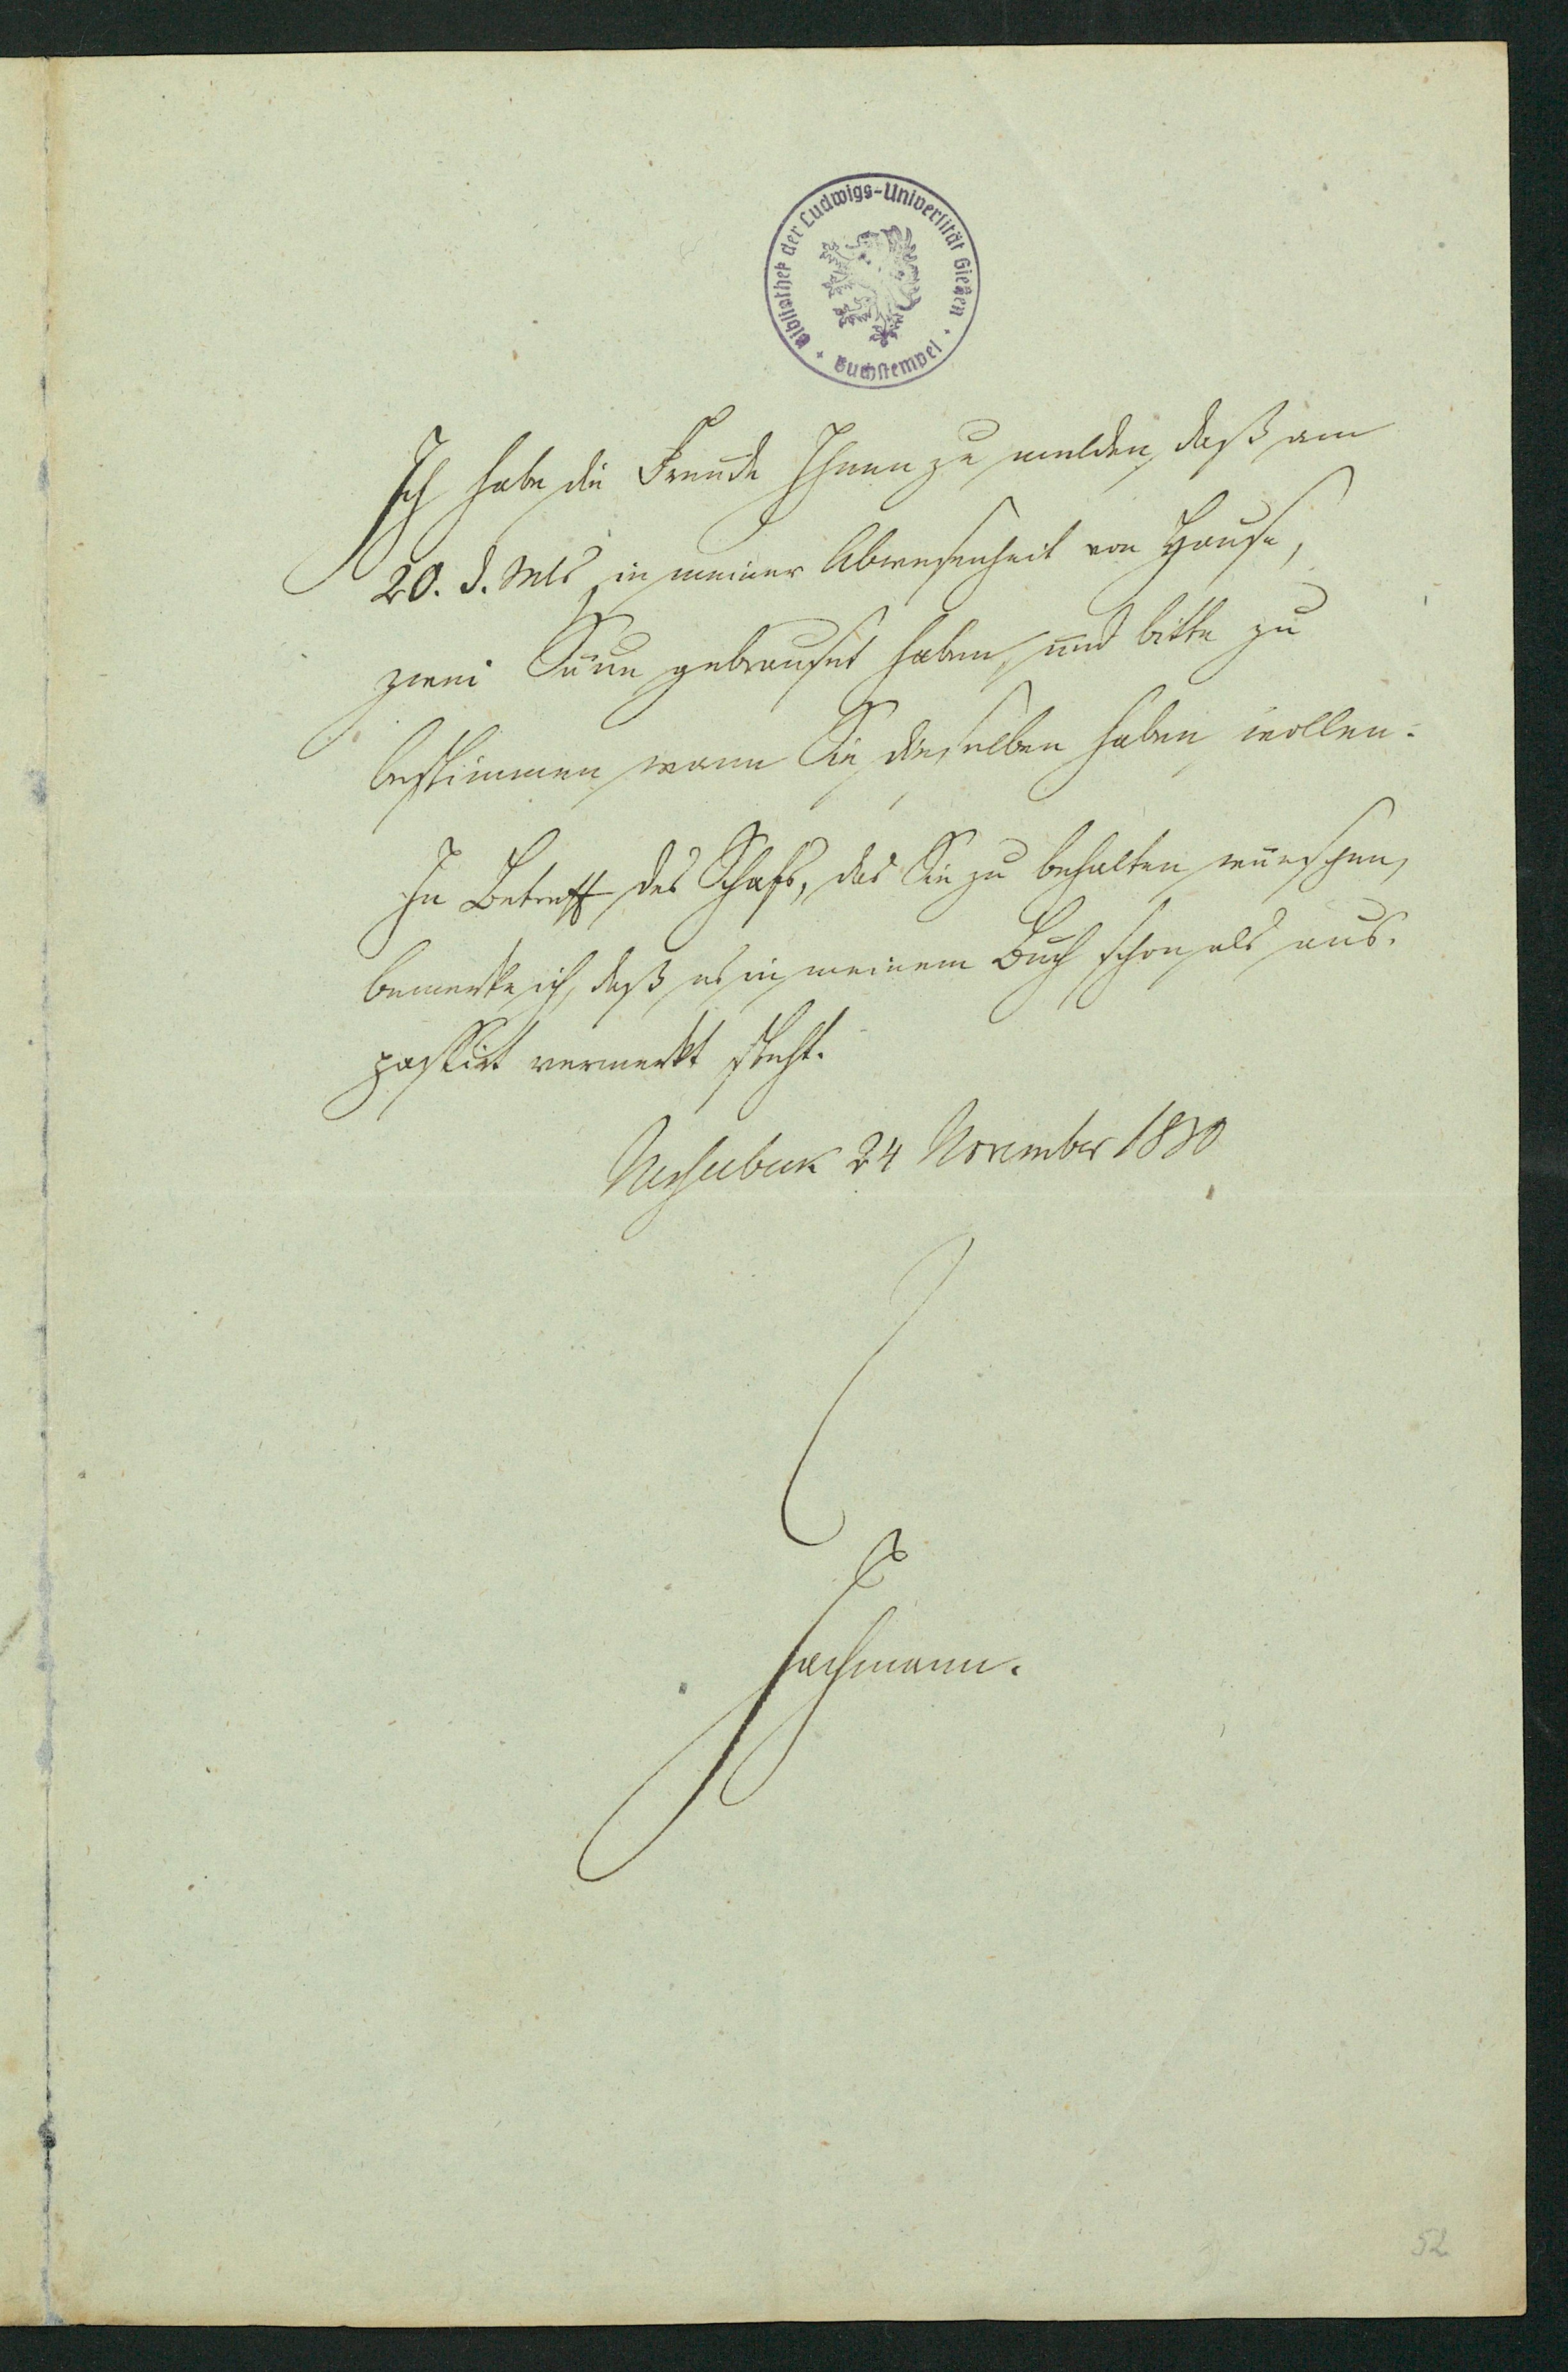 Bibliothek der Ludwigs-Universität Gießen
Buchstempel
Ich habe die Freude Ihnen zu melden, daß am
20. d. Mts in meiner Abwesenheit von Hause,
zwei Säue gebrauset haben, und bitte zu
bestimmen, wann Sie dieselben haben wollen.
In Betreff des Schafs, das Sie zu behalten wünschen,
bemerke ich, daß es in meinem Buch schon als aus-
passirt vermerkt steht.
24 November 1830
52